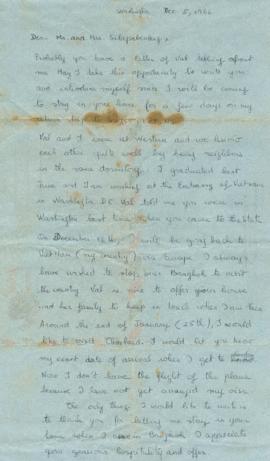 Washington Dec. 5, 1966
Dear Mr. and Mrs.
Probably you have a letter of Val talking about
me. May I take this opportunity to write you
and introduce myself since I will be coming
to stay in your house for a few days on my
return
Val and I were at Western and we knew
each other quite well by being neighbors
in the same dormitory. I graduated last
June and I am working at the Embassy of Vietnam
in Washington D.C. Val told me you were in
Washington last time when you came to the States.
On December I will be going back to
Viet Nam (my country) via Europe. I always
have wished to stop over Bangkok to visit
the country. Val is nice to offer your house
and her family to keep in touch when I am there.
Around the end of January (25th), I would
like to visit Thailand. I would let you hear
my exact date of arrival when I get to
Now I don't have the flight of the plane
because I have not yet arranged my visa.
The only thing I would like to write is
to thank you for letting me stay in your
home when I am in Bangkok. I appreciate
your generous hospitality and offer.